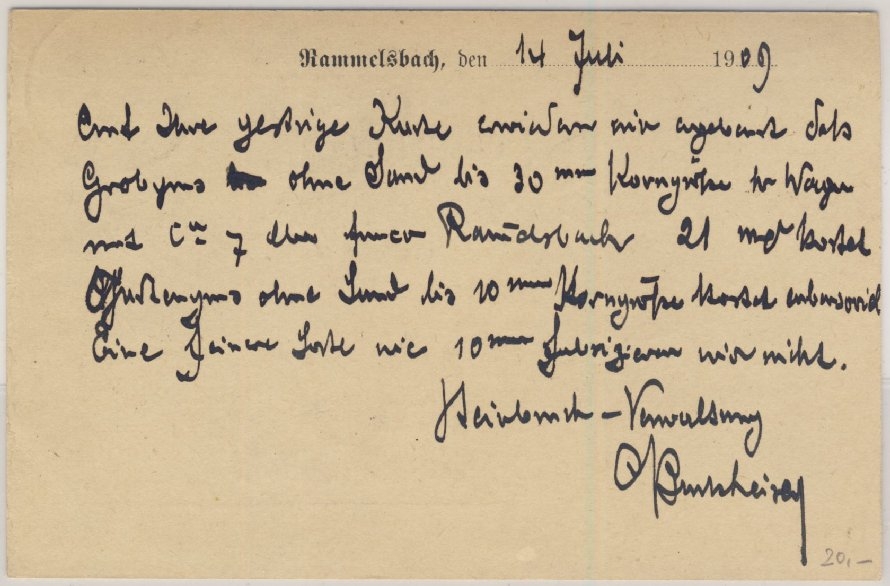 Rammelsbach, den 14 Juli 1909
Auf Ihre gestrige Karte erwidern wir ergebenst daß
Grobgrus ohne Sand bis 30 mm Korngröße pr Wagen
mit Ca 7 cbm franco Rammelsbach 21 Mk kostet
ohne Sand bis 10 mm Korngröße kostet ebensoviel
Eine feinere Sorte wie 10 mm fabrizieren wir nicht.
Steinbruch-Verwaltung
20,-